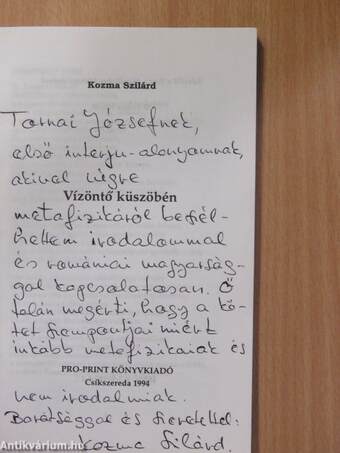 Kozma Szilárd
Tornai Józsefnek,
első interju-alanyomnak,
akivel végre
Vízöntő küszöbén
metafizikáról beszél-
hettem irodalommal
és romániai magyarság-
gal kapcsolatosan. Ő
talán megérti, hogy a kö-
tet szempontjai miért
inkább metafizikaiak és
PRO-PRINT KÖNYVKIADÓ
Csíkszereda 1994
nem irodalmiak.
Barátsággal és szeretettel:
Kozma Szilárd.
Antikvárium.hu